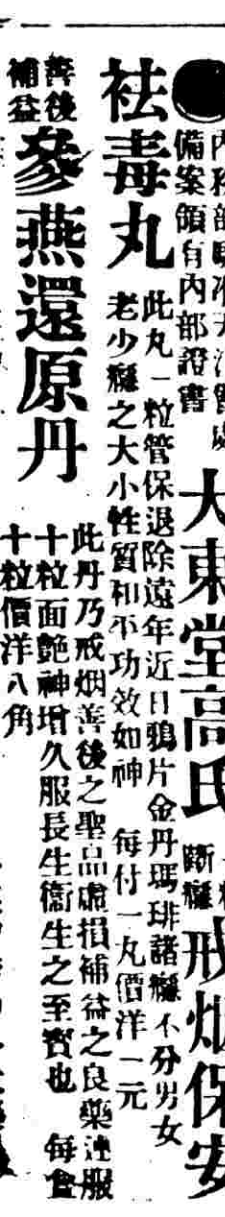 備案領有內部證書
大東堂高氏
斷癮
戒烟保安
祛毒丸
此丸一粒管保退除遠年近日鴉片金丹瑪琲諸癮不分男女
老少癮之大小性質和平功效如神 每付一丸價洋一元
善後
補益
參燕還原丹
此丹乃戒烟善後之聖品虛損補益之良藥連服
十粒面艷神增久服長生衞生之至寳也 每盒
十粒價洋八角